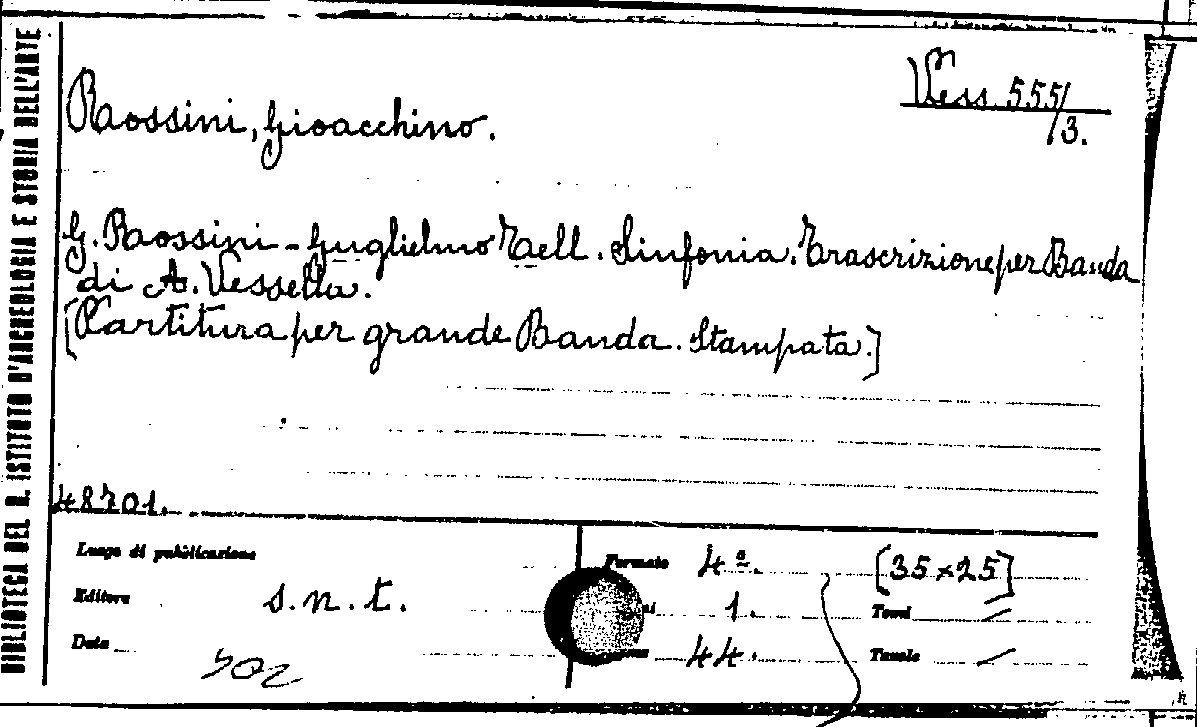 BIBLIOTECA DEL R. ISTITUTO D'ARCHEOLOGIA E STORIA DELL'ARTE
Vess. 555/3.
Rossini, Gioacchino.
G. Rossini - Guglielmo Tell. Sinfonia. Trascrizione per Banda
di A. Vessella.
[Partitura per grande Banda. Stampata.]
48701.
Luogo di pubblicazione
Formato 4º. [35×25]
Editore s.n.t.
1. Tomi /
Data
44. Tavole /